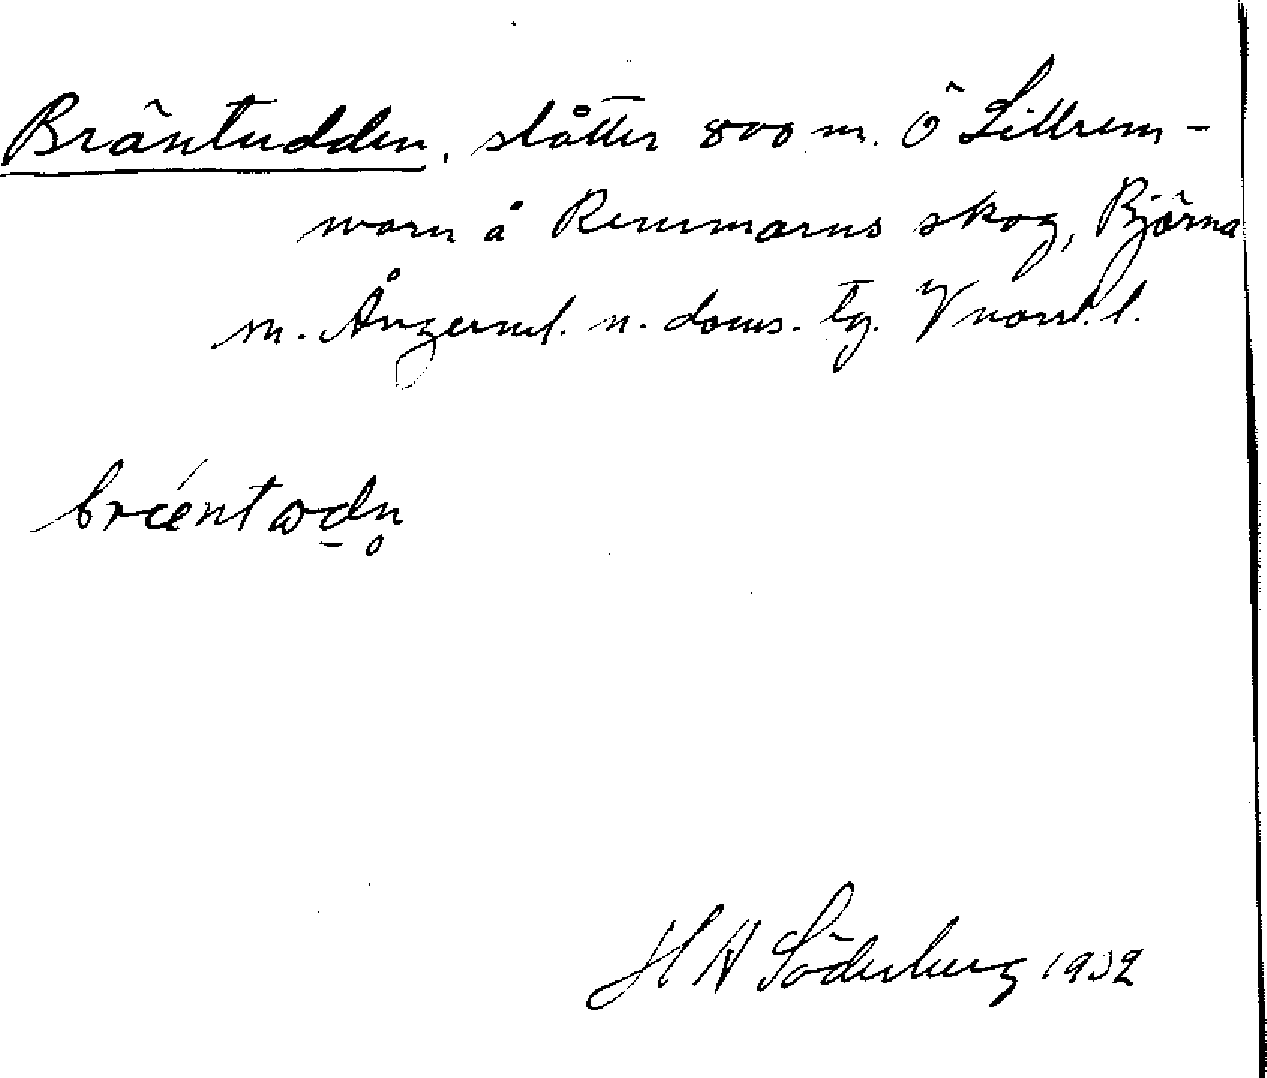 Bräntudden, slåtter 800 m. Ö Lillrem-
marn å Remmarns skog, Björna
m. Ångerml. n. doms. tg. Vnorrl. l.
H A Söderberg 1932